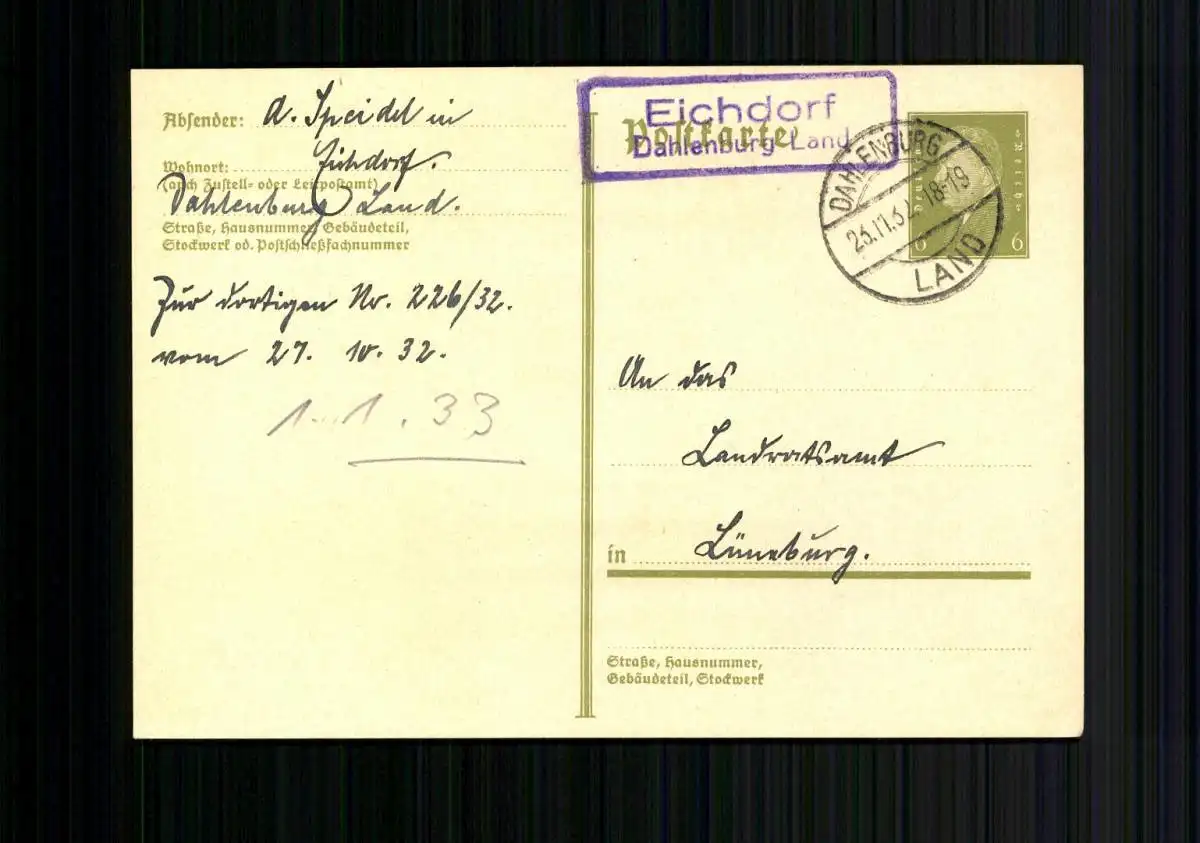 Absender: A. Speidel in
Wohnort: Eichdorf.
(auch Zustell- oder Leitpostamt)
Dahlenburg Land.
Straße, Hausnummer, Gebäudeteil,
Stockwerk od. Postschließfachnummer
Zur dortigen Nr. 226/32.
vom 27. 10. 32.
1. 1. 33
Eichdorf
Dahlenburg Land
Postkarte
DAHLENBURG
18-19
LAND
6 6
An das
Landratsamt
in Lüneburg.
Straße, Hausnummer,
Gebäudeteil, Stockwerk